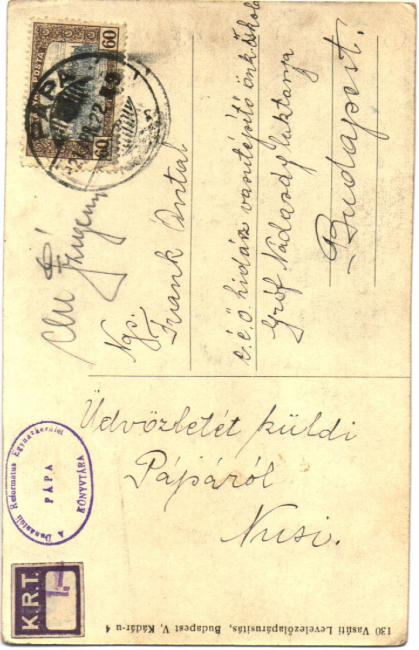 60
60
POSTA
PÁPA
Ngs.
Frank Antal
c.é.ö. hidász vasútépítő önk. iskola
Gróf Nádasdy laktanya
Budapest.
Üdvözletét küldi
Pápáról
Nusi.
A Dunántúli Református Egyházkerület
PÁPA
KÖNYVTÁRA
K.R.T.
1.-
130 Vasúti Levelezőlapárusítás, Budapest V, Kádár-u 4